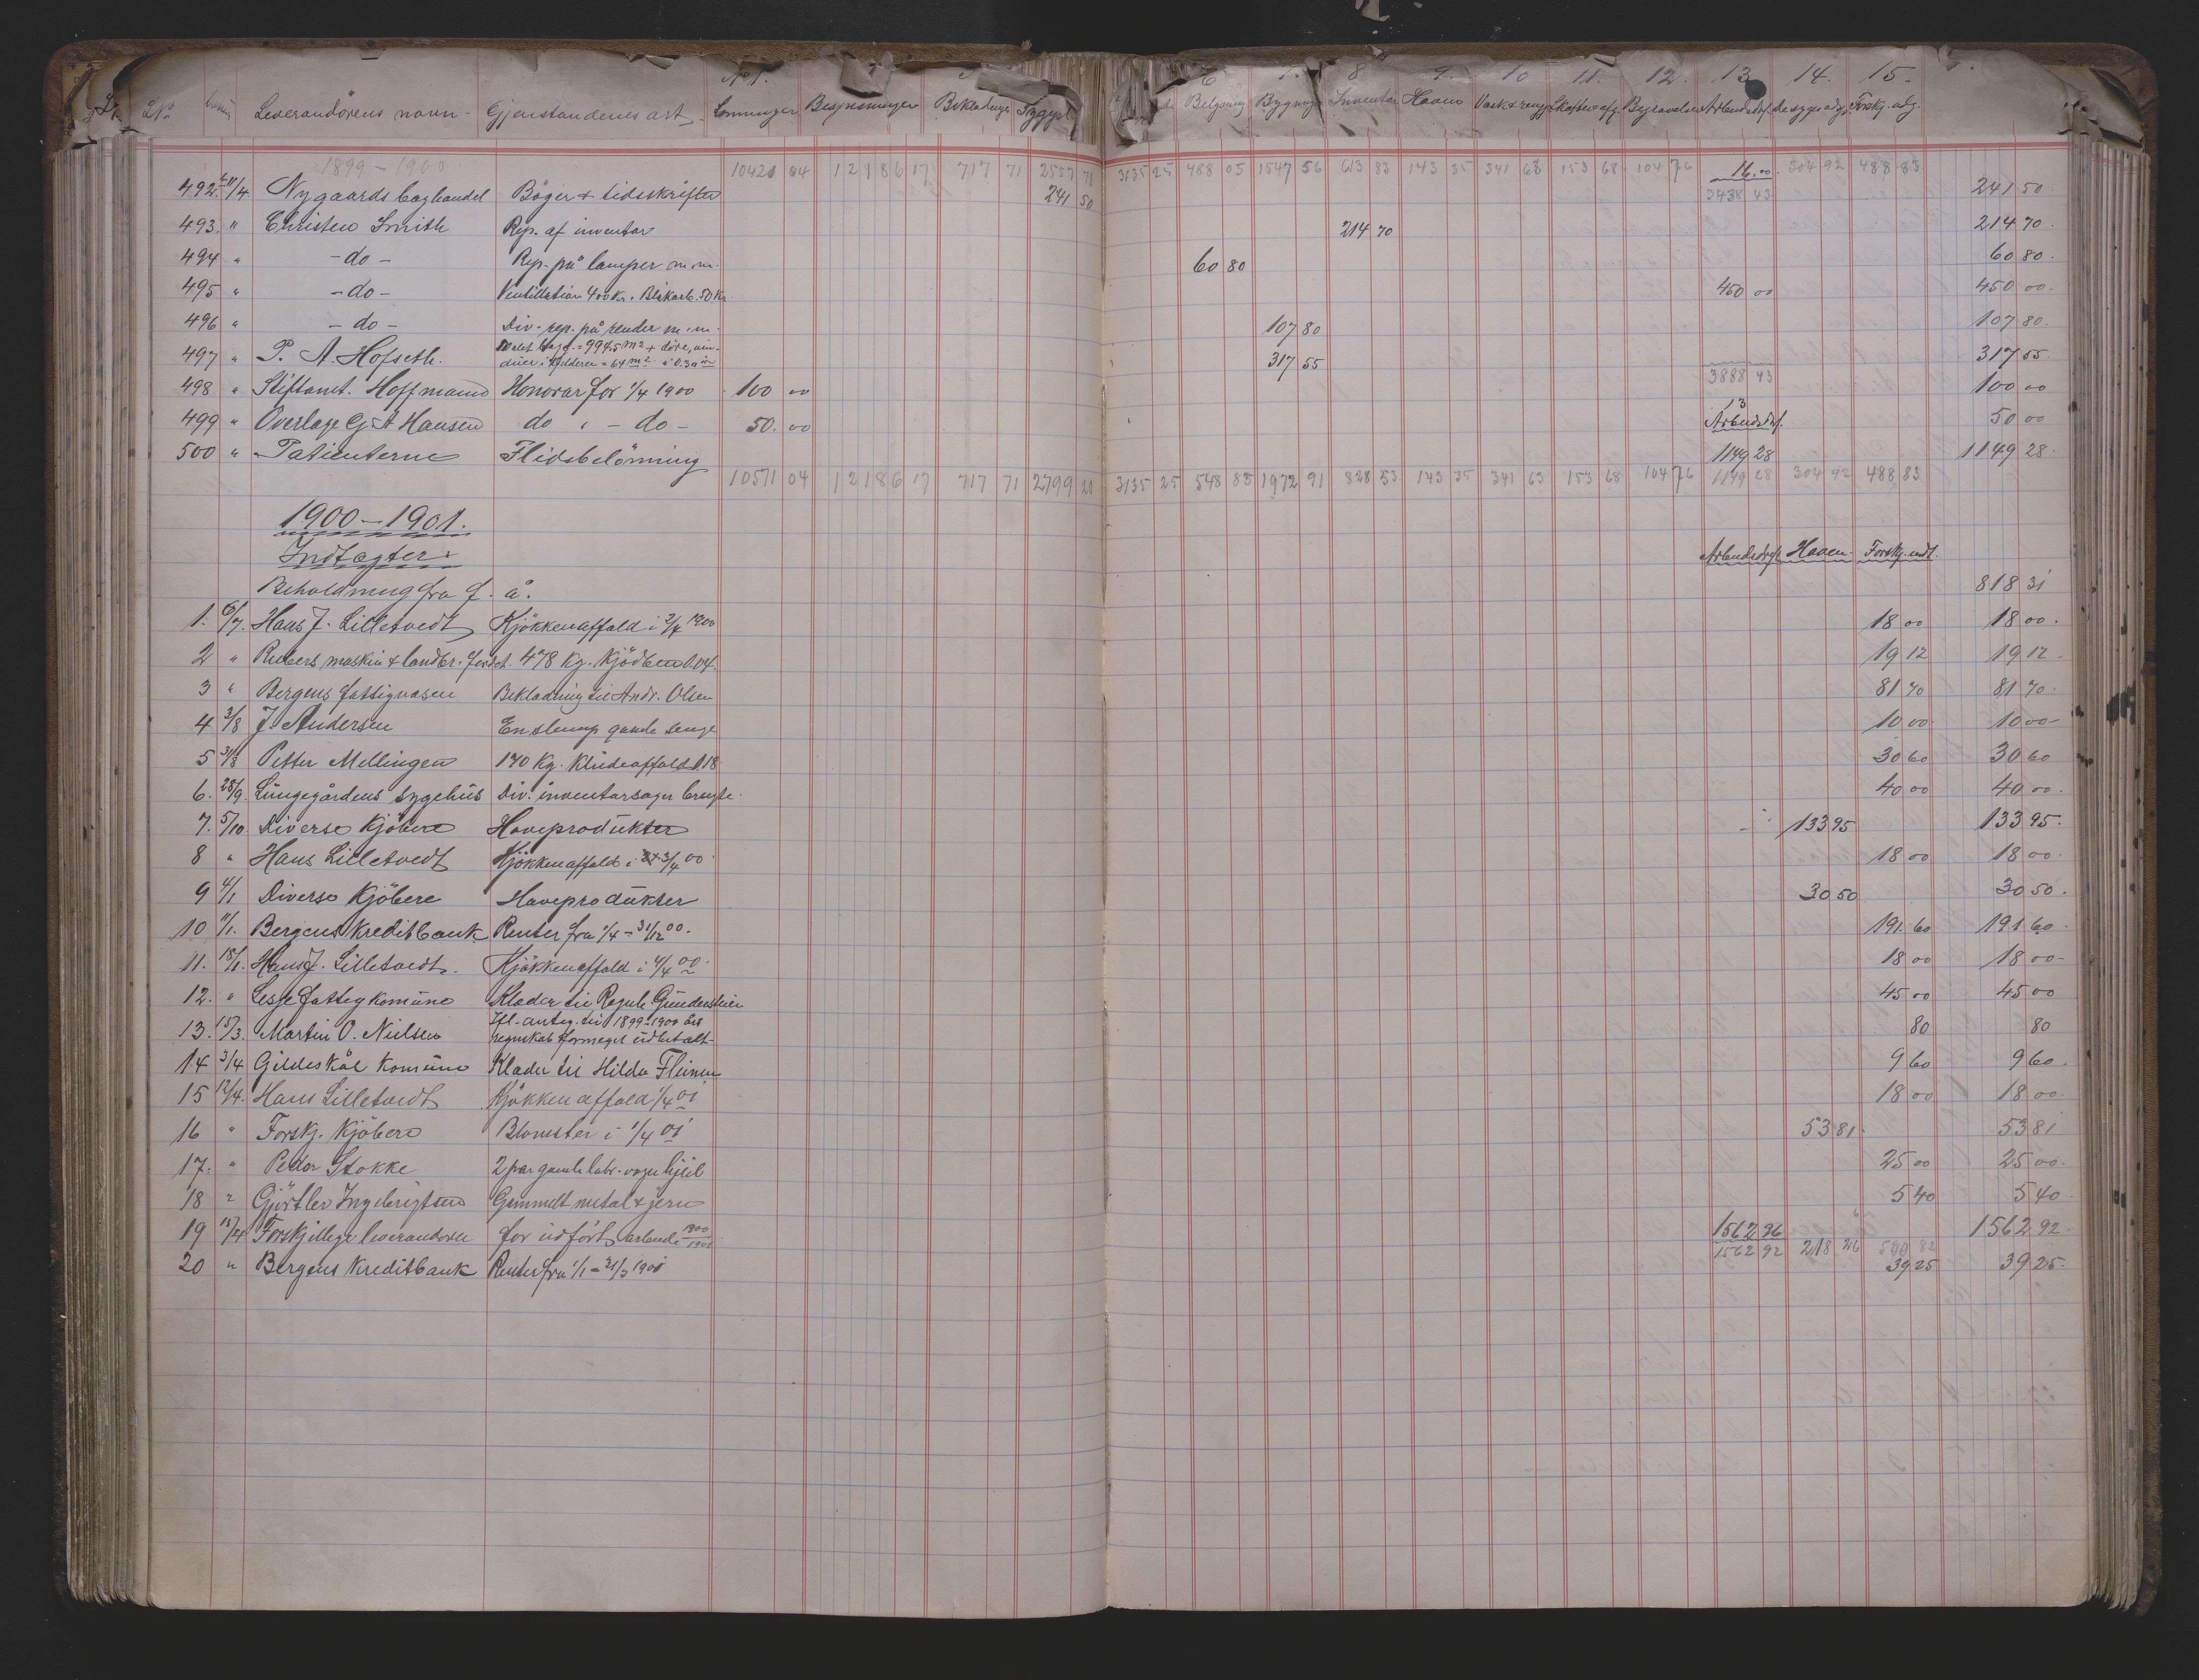 No 1. 6 7. 8 9. 10 11. 12. 13 14. 15.
L No. Leverandörens navn - Gjenstandenes art Lönninger Bespisningen Beklædninge Sygepl. Belysning Bygninge Inventar Haven Vask & rengj. Skatter & afg. Begravelse Arbeidsdr. Forskj. udg.
1899 - 1900 10421 04 12186 17 717 71 2557 71 3135 25 488 05 1547 56 613 83 143 35 341 63 153 68 104 76 16.00 304 92 488 83
492. 11/4. Nygaards boghandel Böger & tidsskrifter 241 50 3438 43 241 50
493. " Christen Smith Rep. af inventar 214 70 214 70
494 " - do - Rep. på lamper m.m. 60 80 60 80
495 " - do - Ventillation 400 Kr. Blikarb. 50 Kr. 450 00 450 00
496 " - do - Div. rep. på render m.m. 107 80 107 80
497 " P. A. Hofseth. Malet bygd. = 994,5 m2 + döre, vin-
duer i Kjelderen = 64 m2 à 0.30 317 55 317 55
498 " Stiftamt. Hoffmann Honorar for 1/4 1900 100 00 3888 43 100 00
499 " Overlæge G. A. Hansen do " - do - 50.00 13 Arbeidsdr. 50 00
500 " Patienterne Flidsbelönning 1149 28 1149 28
10571 04 12186 17 717 71 2799 21 3135 25 548 85 1972 91 828 53 143 35 341 63 153 68 104 76 1149 28 304 92 488 83
1900 - 1901.
Indtægter. Arbeidsdr. Haven. Forskj. indt.
Beholdning fra f. å. 818 31
1. 6/7. Hans J. Lilletvedt Kjökkenaffald i 2/4 1900 18 00 18 00
2 " Riebers maskin & landbr. forret. 478 Kg. Kjödben 0.04. 19 12 19 12
3 " Bergens fattigvæsen Beklædning til Andr. Olsen 81 70 81 70
4 3/8 J. Andersen En slump gamle senge 10 00 10 00
5 31/8 Petter Mellingen 170 Kg. Kludeaffald 0.18 30 60 30 60
6. 28/9. Lungegårdens sygehus Div. inventarsager brugte. 40 00 40 00
7. 5/10. Diverse Kjöbere Haveprodukter 133 95 133 95
8 " Hans Lilletvedt Kjökkenaffald i 3/4 00 18 00 18 00
9 4/1 Diverse Kjöbere Haveprodukter 30 50 30 50
10 11/1. Bergens Kreditbank Renter fra 1/4 - 31/12 00. 191.60 191 60
11. 18/1. Hans J. Lilletvedt. Kjökkenaffald i 4/4 00 18 00 18 00
12. " Lesje fattigkomune Klæder til Regule Gundersteien 45 00 45 00
13. 15/3. Martin O. Nielsen Ifl. anteg. til 1899-1900 års
regnskab formeget udbetalt 80 80
14 3/4 Gildeskål Komune Klæder til Hilda Flinum 9 60 9 60
15 12/4. Hans Lilletvedt Kjökkenaffald 1/4 01 18 00 18 00
16 " Forskj. Kjöbere Blomster i 1/4 01 53 81 53 81
17. " Peder Stokke 2 par gamle laste-vogn hjül 25 00 25 00
18 " Gjörtler Ingebrigtsen Gammelt metal & jern 5 40 5 40
19 15/4 Forskjellige leverandörer for udfört arbeide 1900 1901 1562 96 1562 92
1562 92 218 26 500 82
20 " Bergens Kreditbank Renter fra 1/1 - 31/3 1901 39 25 39 25